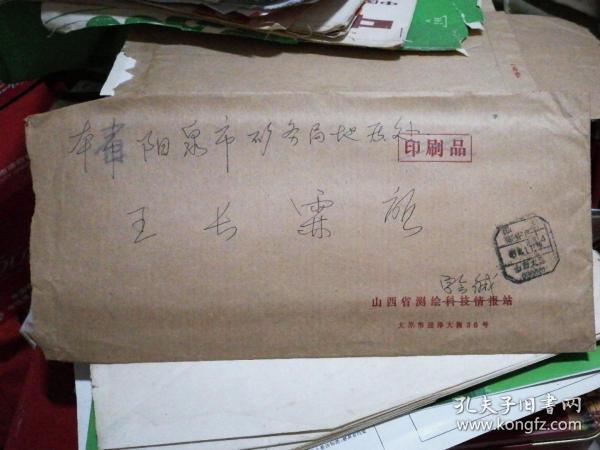 本省阳泉市矿务局地质处
印刷品
王长霖启
学会缄
山西省测绘科技情报站
太原市迎泽大街36号
孔夫子旧书网
www.kongfz.com